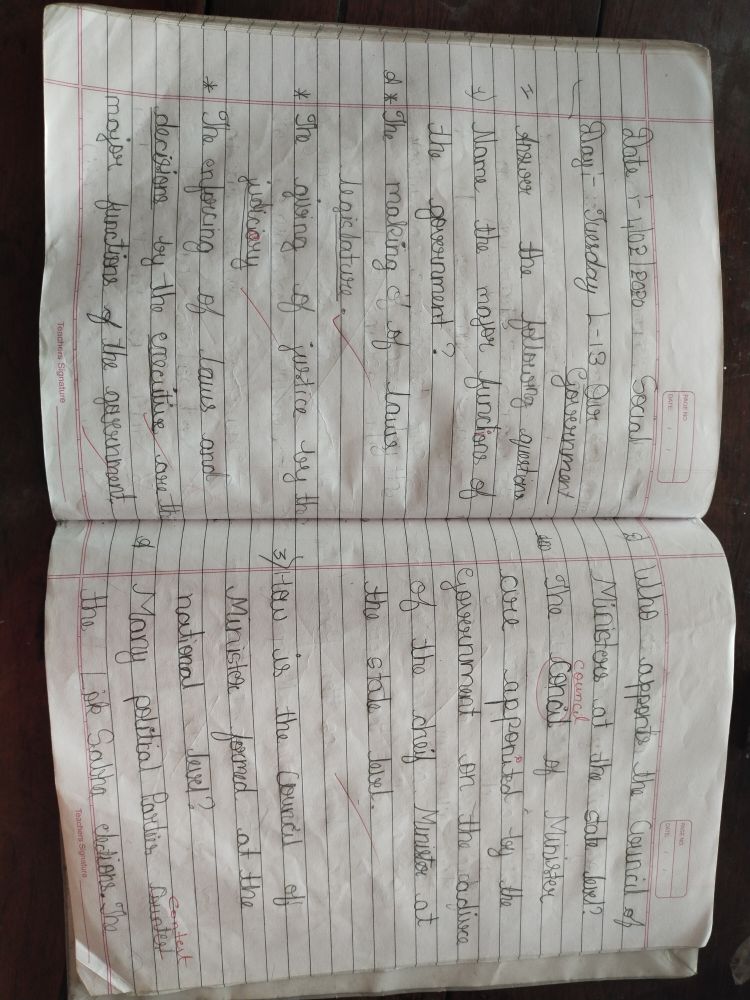 PAGE NO
DATE
Date :- 4/02/2020 Social
Day :- Tuesday L-13 Our
Government
I Answer the following questions
1) Name the major functions of
the government?
* The making of of laws the
legislature.
* The giving of justice by th
judiciary
* The enforcing of laws and
decisions by the executive are th
major functions of the government
Teachers Signature
PAGE NO
DATE
2) Who appoints the Council of
Ministers at the state level?
council
The concil of Minister
are apponited by the
Government on the advise
of the cheif Minister at
the state level.
3) How is the Council of
Minister formed at the
national level?
contest
Many political Parties countest
the Lok Sabha elections. The
Teachers Signature